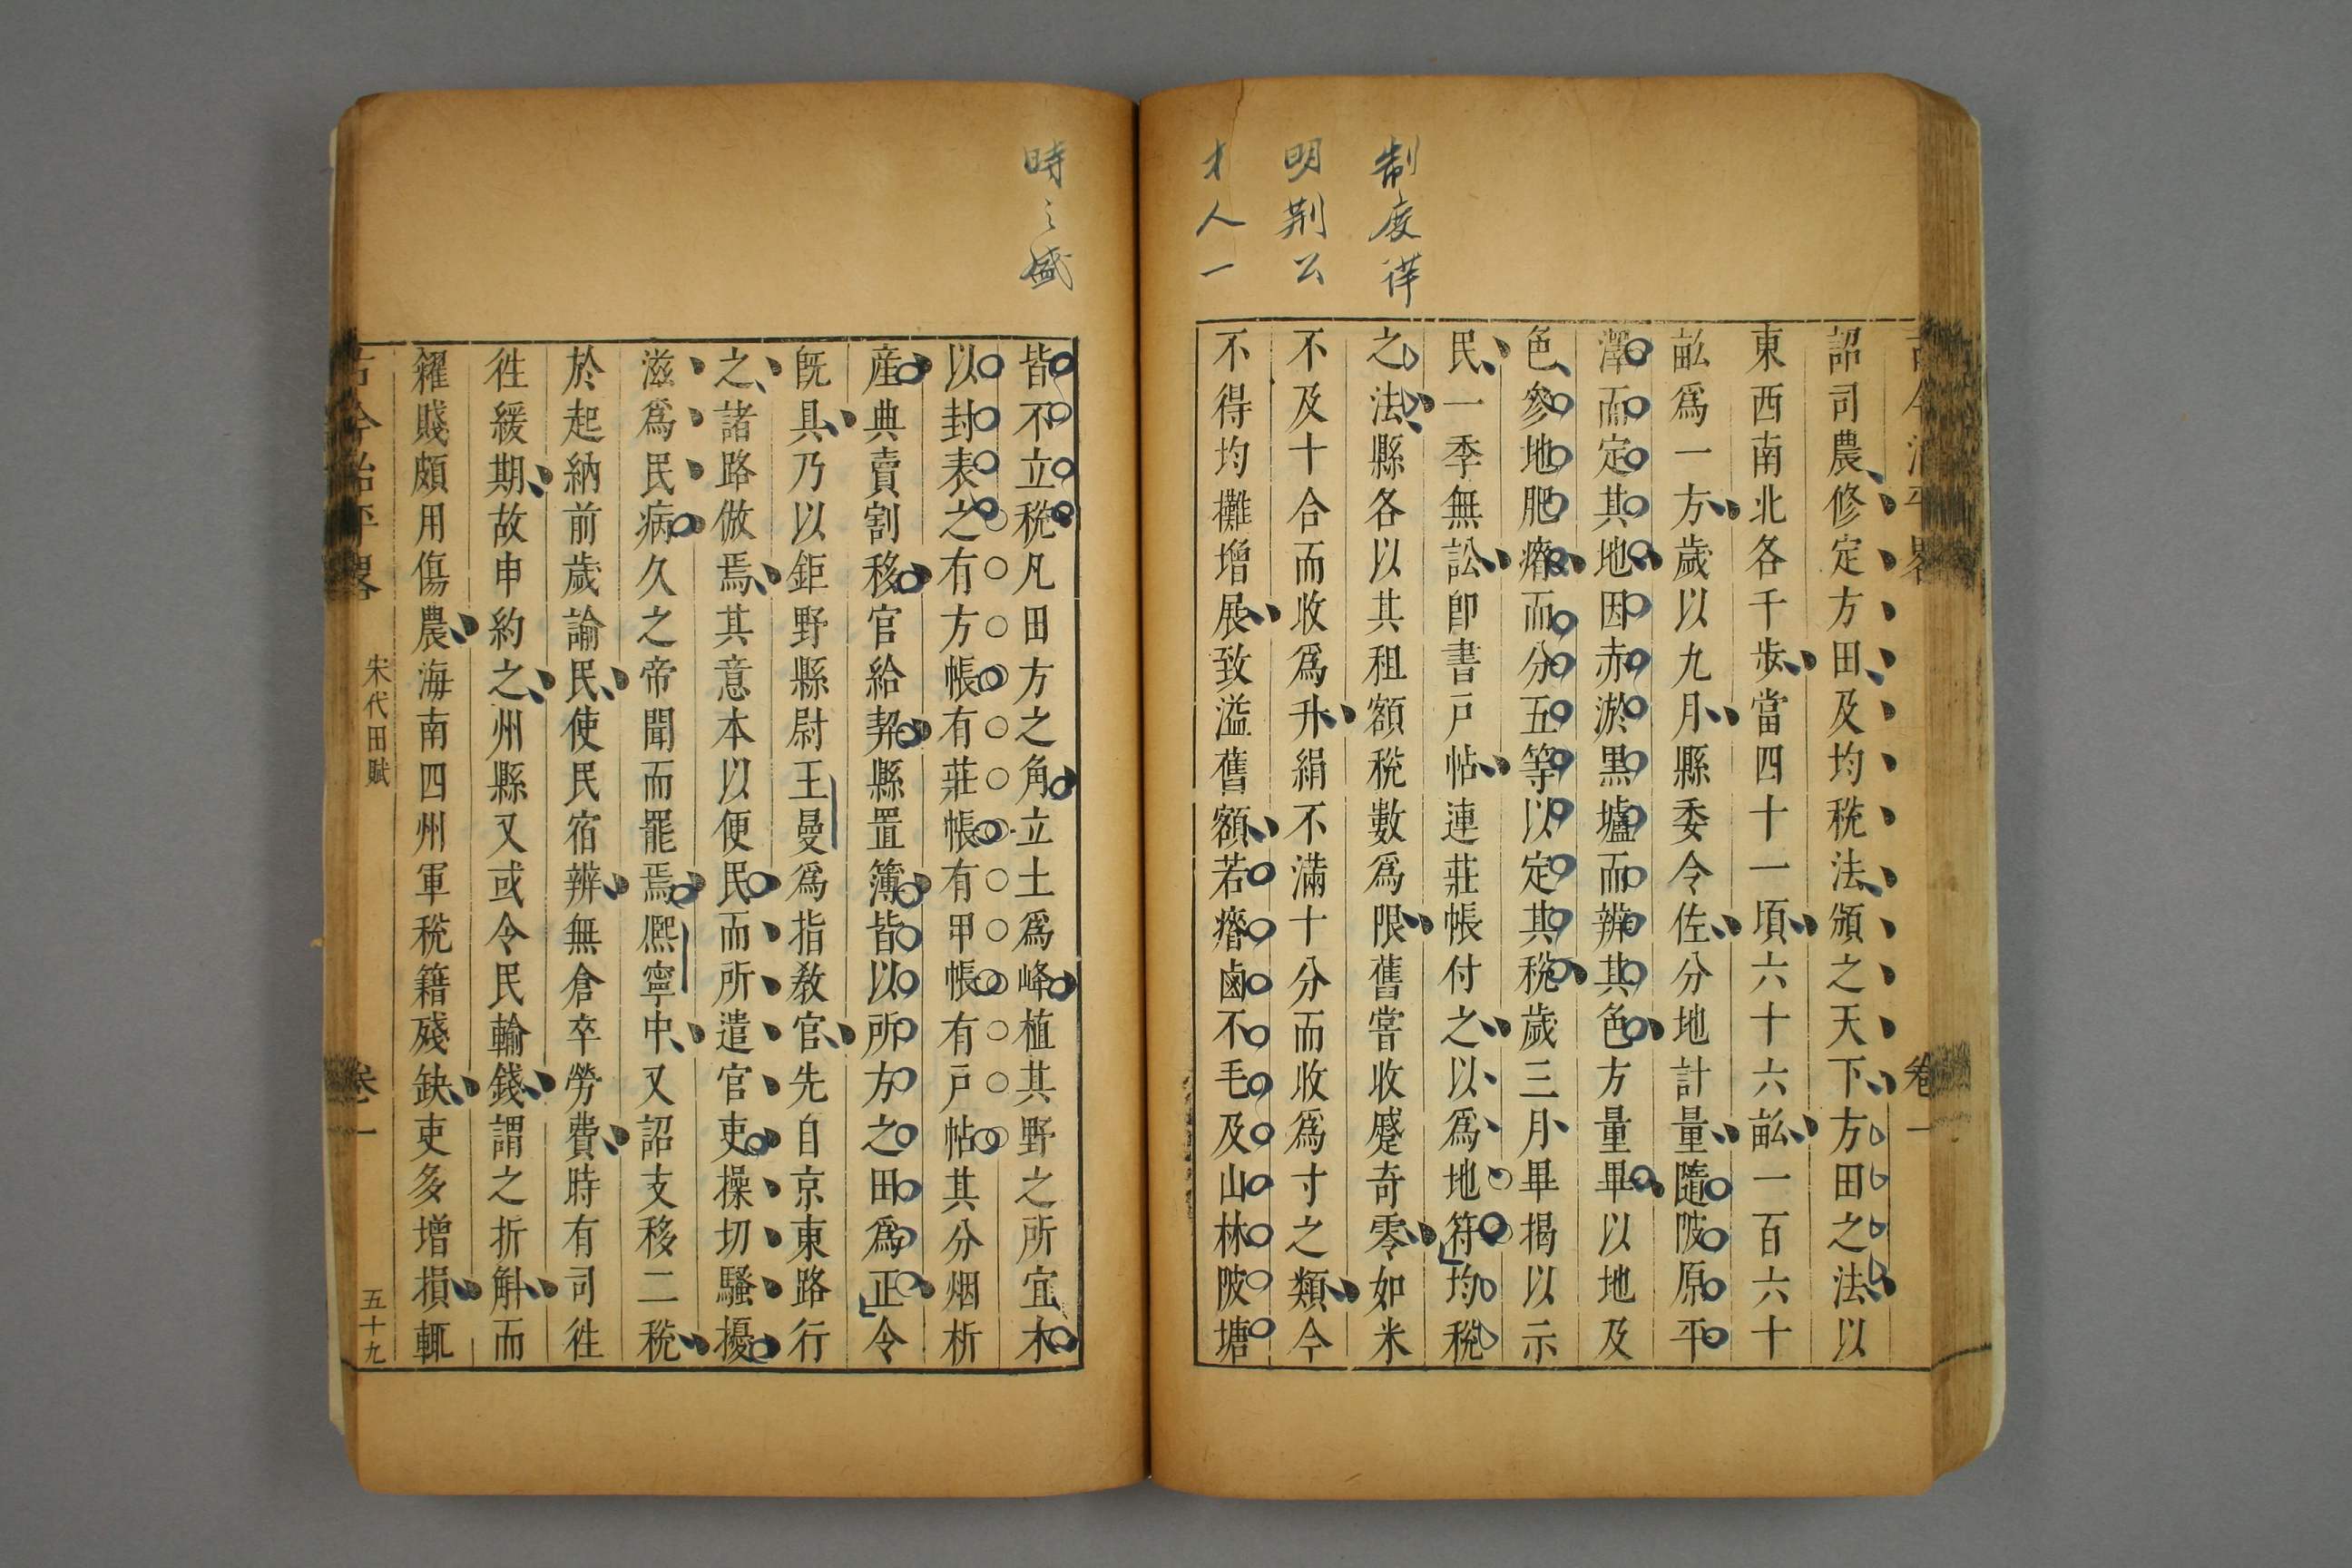 制度詳
明荆公
才人一
時之盛
詔司農修定方田及均稅法頒之天下方田之法以
東西南北各千步當四十一頃六十六畝一百六十
畝爲一方歲以九月縣委令佐分地計量隨陂原平
澤而定其地因赤淤黑壚而辨其色方量畢以地及
色參地肥瘠而分五等以定其稅歲三月畢揭以示
民一季無訟卽書戸帖連莊帳付之以爲地符均稅
之法縣各以其租額稅數爲限舊嘗收蹙奇零如米
不及十合而收爲升絹不滿十分而收爲寸之類今
不得均攤增展致溢舊額若瘠鹵不毛及山林陂塘
皆不立稅凡田方之角立土爲峰植其野之所宜木
以封表之有方帳有莊帳有甲帳有戸帖其分烟析
産典賣割移官給契縣置簿皆以所方之田爲正令
既具乃以鉅野縣尉王曼爲指教官先自京東路行
之諸路倣焉其意本以便民而所遣官吏操切騷擾
滋爲民病久之帝聞而罷焉熈寧中又詔支移二稅
於起納前歲諭民使民宿辨無倉卒勞費時有司徃
徃緩期故申約之州縣又或令民輸錢謂之折斛而
糴賤頗用傷農海南四州軍稅籍殘缺吏多增損輒
宋代田賦
卷一
五十九